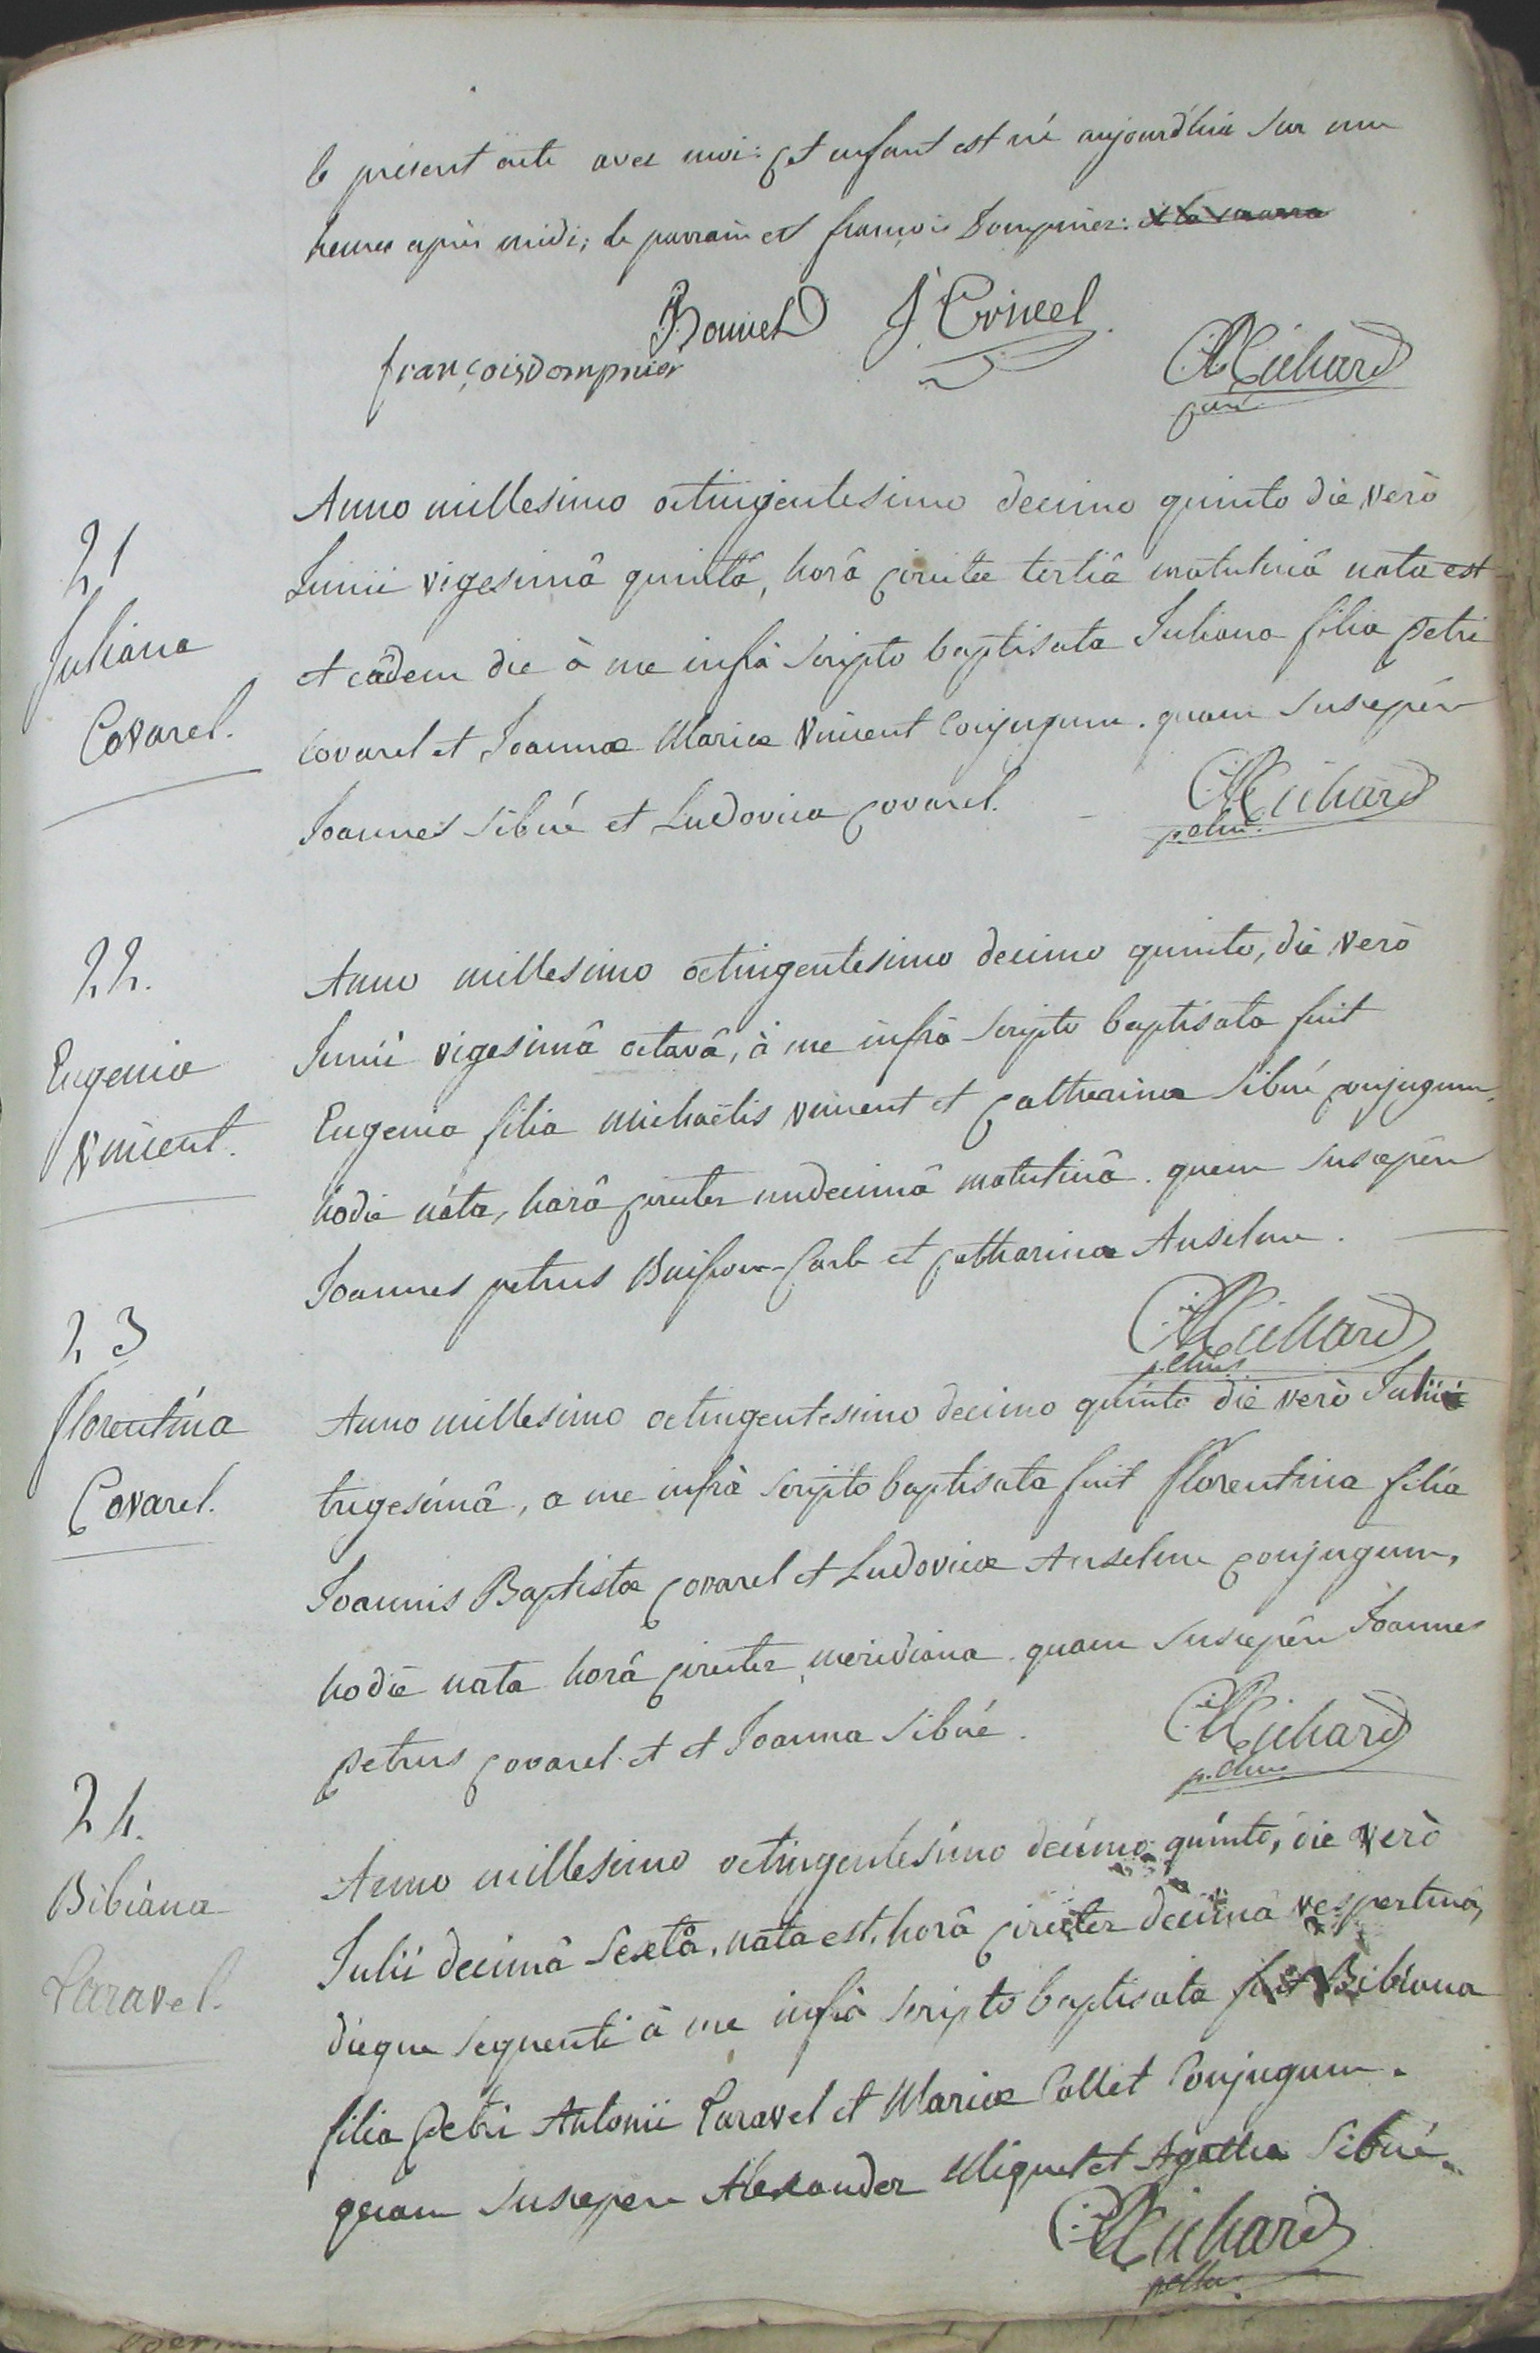 le présent acte avec moi: cet enfant est né aujourd'hui sur une
heures après midi; le parrain est françois Dompnier:
Bouvet J. Crinel
françois dompnier
Richard
curé
21
Juliana
Covarel.
Anno millesimo octingentesimo decimo quinto die verò
Junii vigesimâ quintâ, horâ circiter tertiâ matutinâ nata est
et eâdem die à me infrà scripto baptisata Juliana filia petri
Covarel et Joannæ Mariæ Vincent Conjugum. quam suscepêre
Joannes Sibué et Ludovica Covarel.
Richard
22.
Eugenia
Vincent.
Anno millesimo octingentesimo decimo quinto, die verò
Junii vigesimâ octavâ, à me infrà scripto baptisata fuit
Eugenia filia Michaëlis Vincent et Catherinæ Sibué conjugum,
hodie nata, horâ circiter undecimâ matutinâ. quem suscepêre
Joannes petrus Buisson-Carle et Catharina Anselme.
Richard
23
florentina
Covarel.
Anno millesimo octingentesimo decimo quinto die verò Julii
trigesimâ, a me infrà scripto baptisata fuit florentina filia
Joannis Baptistæ Covarel et Ludovicæ Anselme conjugum,
hodie nata horâ circiter meridiana. quam suscepêre Joannes
petrus Covarel et et Joanna Sibué.
Richard
24.
Bibiana
Paravel.
Anno millesimo octingentesimo decimo quinto, die verò
Julii decimâ Sextâ, nata est, horâ circiter decimâ vespertinâ,
dieque sequenti à me infrà scripto baptisata fuit Bibiana
filia Petri Antonii Paravel et Mariæ Collet Conjugum.
quam suscepêre Alexander Miquet et Agatha Sibué.
Richard